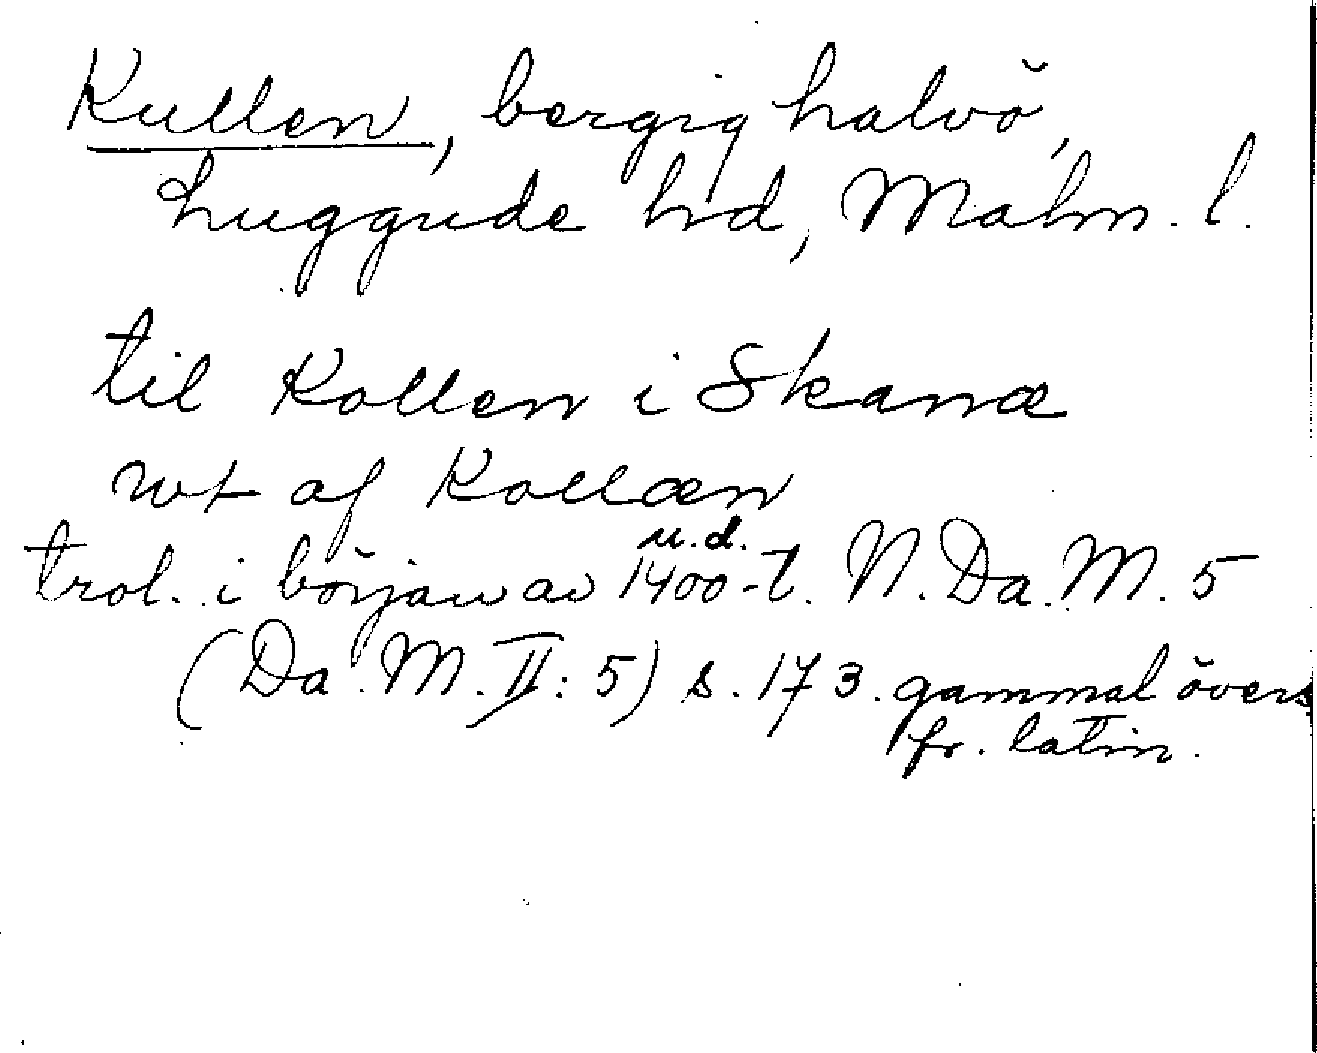 Kullen, bergig halvö,
Luggude hd, Malm. l.
til Kollen i Skanæ
wt af Kollæn
u.d.
trol. i början av 1400-t. N. Da. M. 5
(Da. M. II: 5) s. 173. gammal övers.
fr. latin.